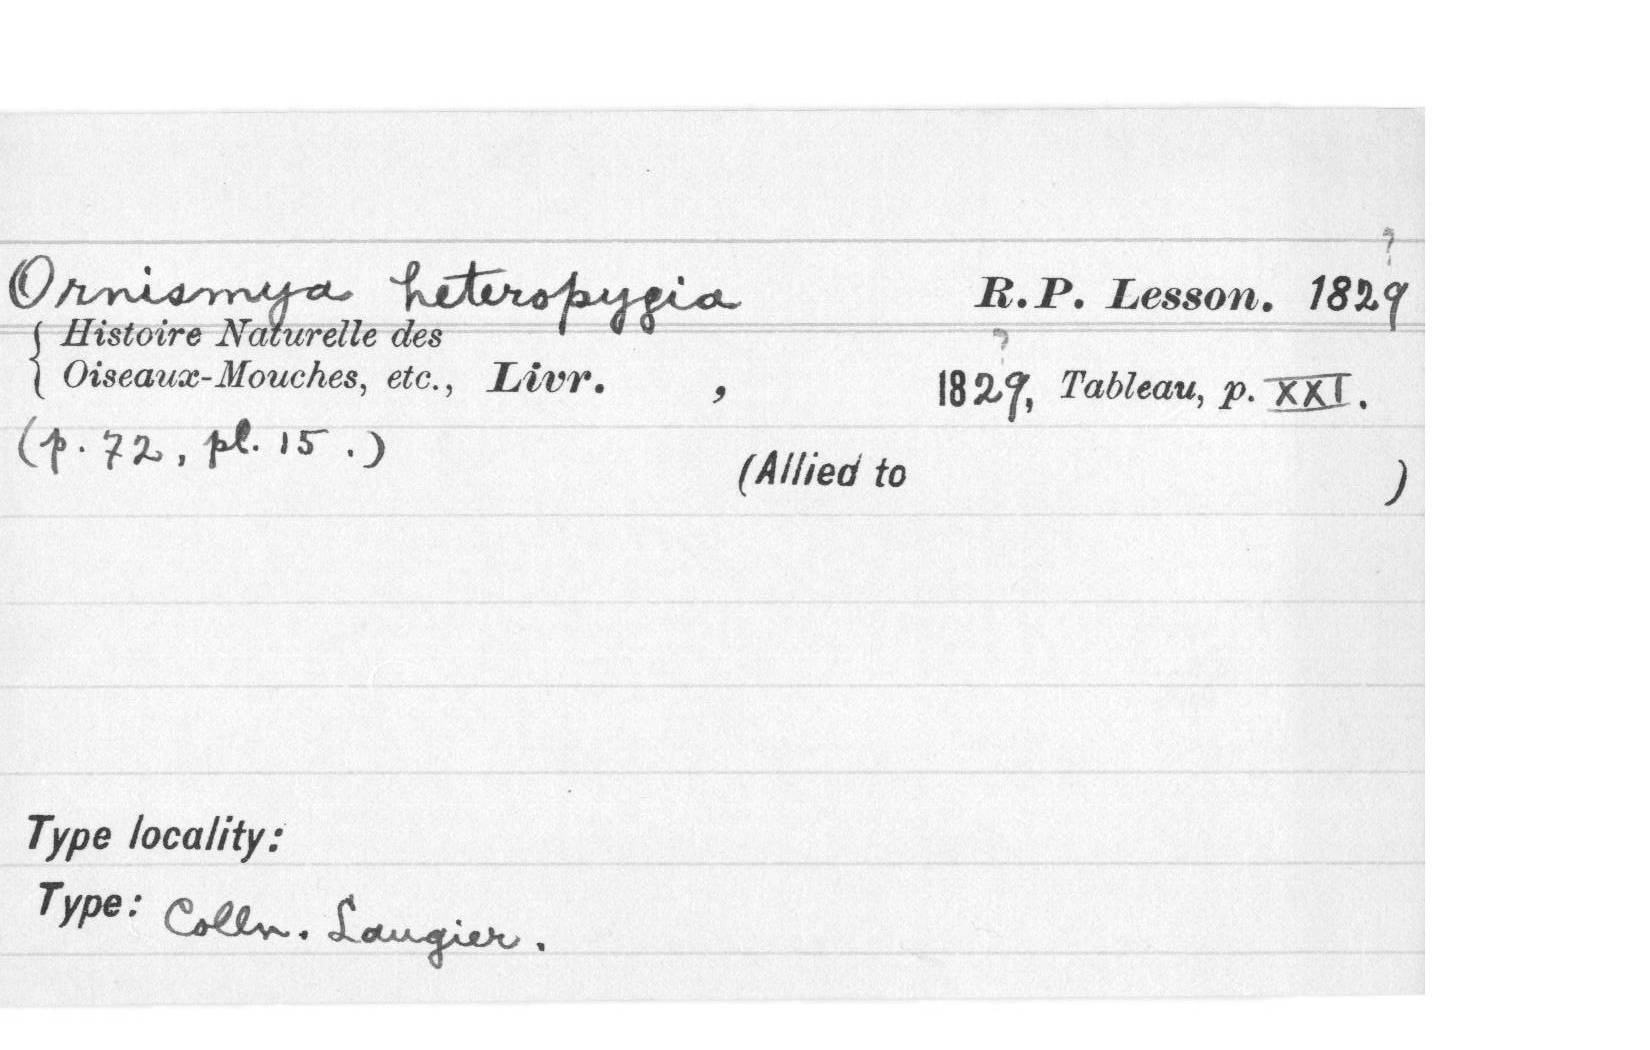 ?
Ornismya heteropygia R.P. Lesson. 1829
{ Histoire Naturelle des ?
Oiseaux-Mouches, etc., Livr. , 1829, Tableau, p. XXI.
(p. 72, pl. 15.)
(Allied to )
Type locality:
Type: Colln. Laugier.